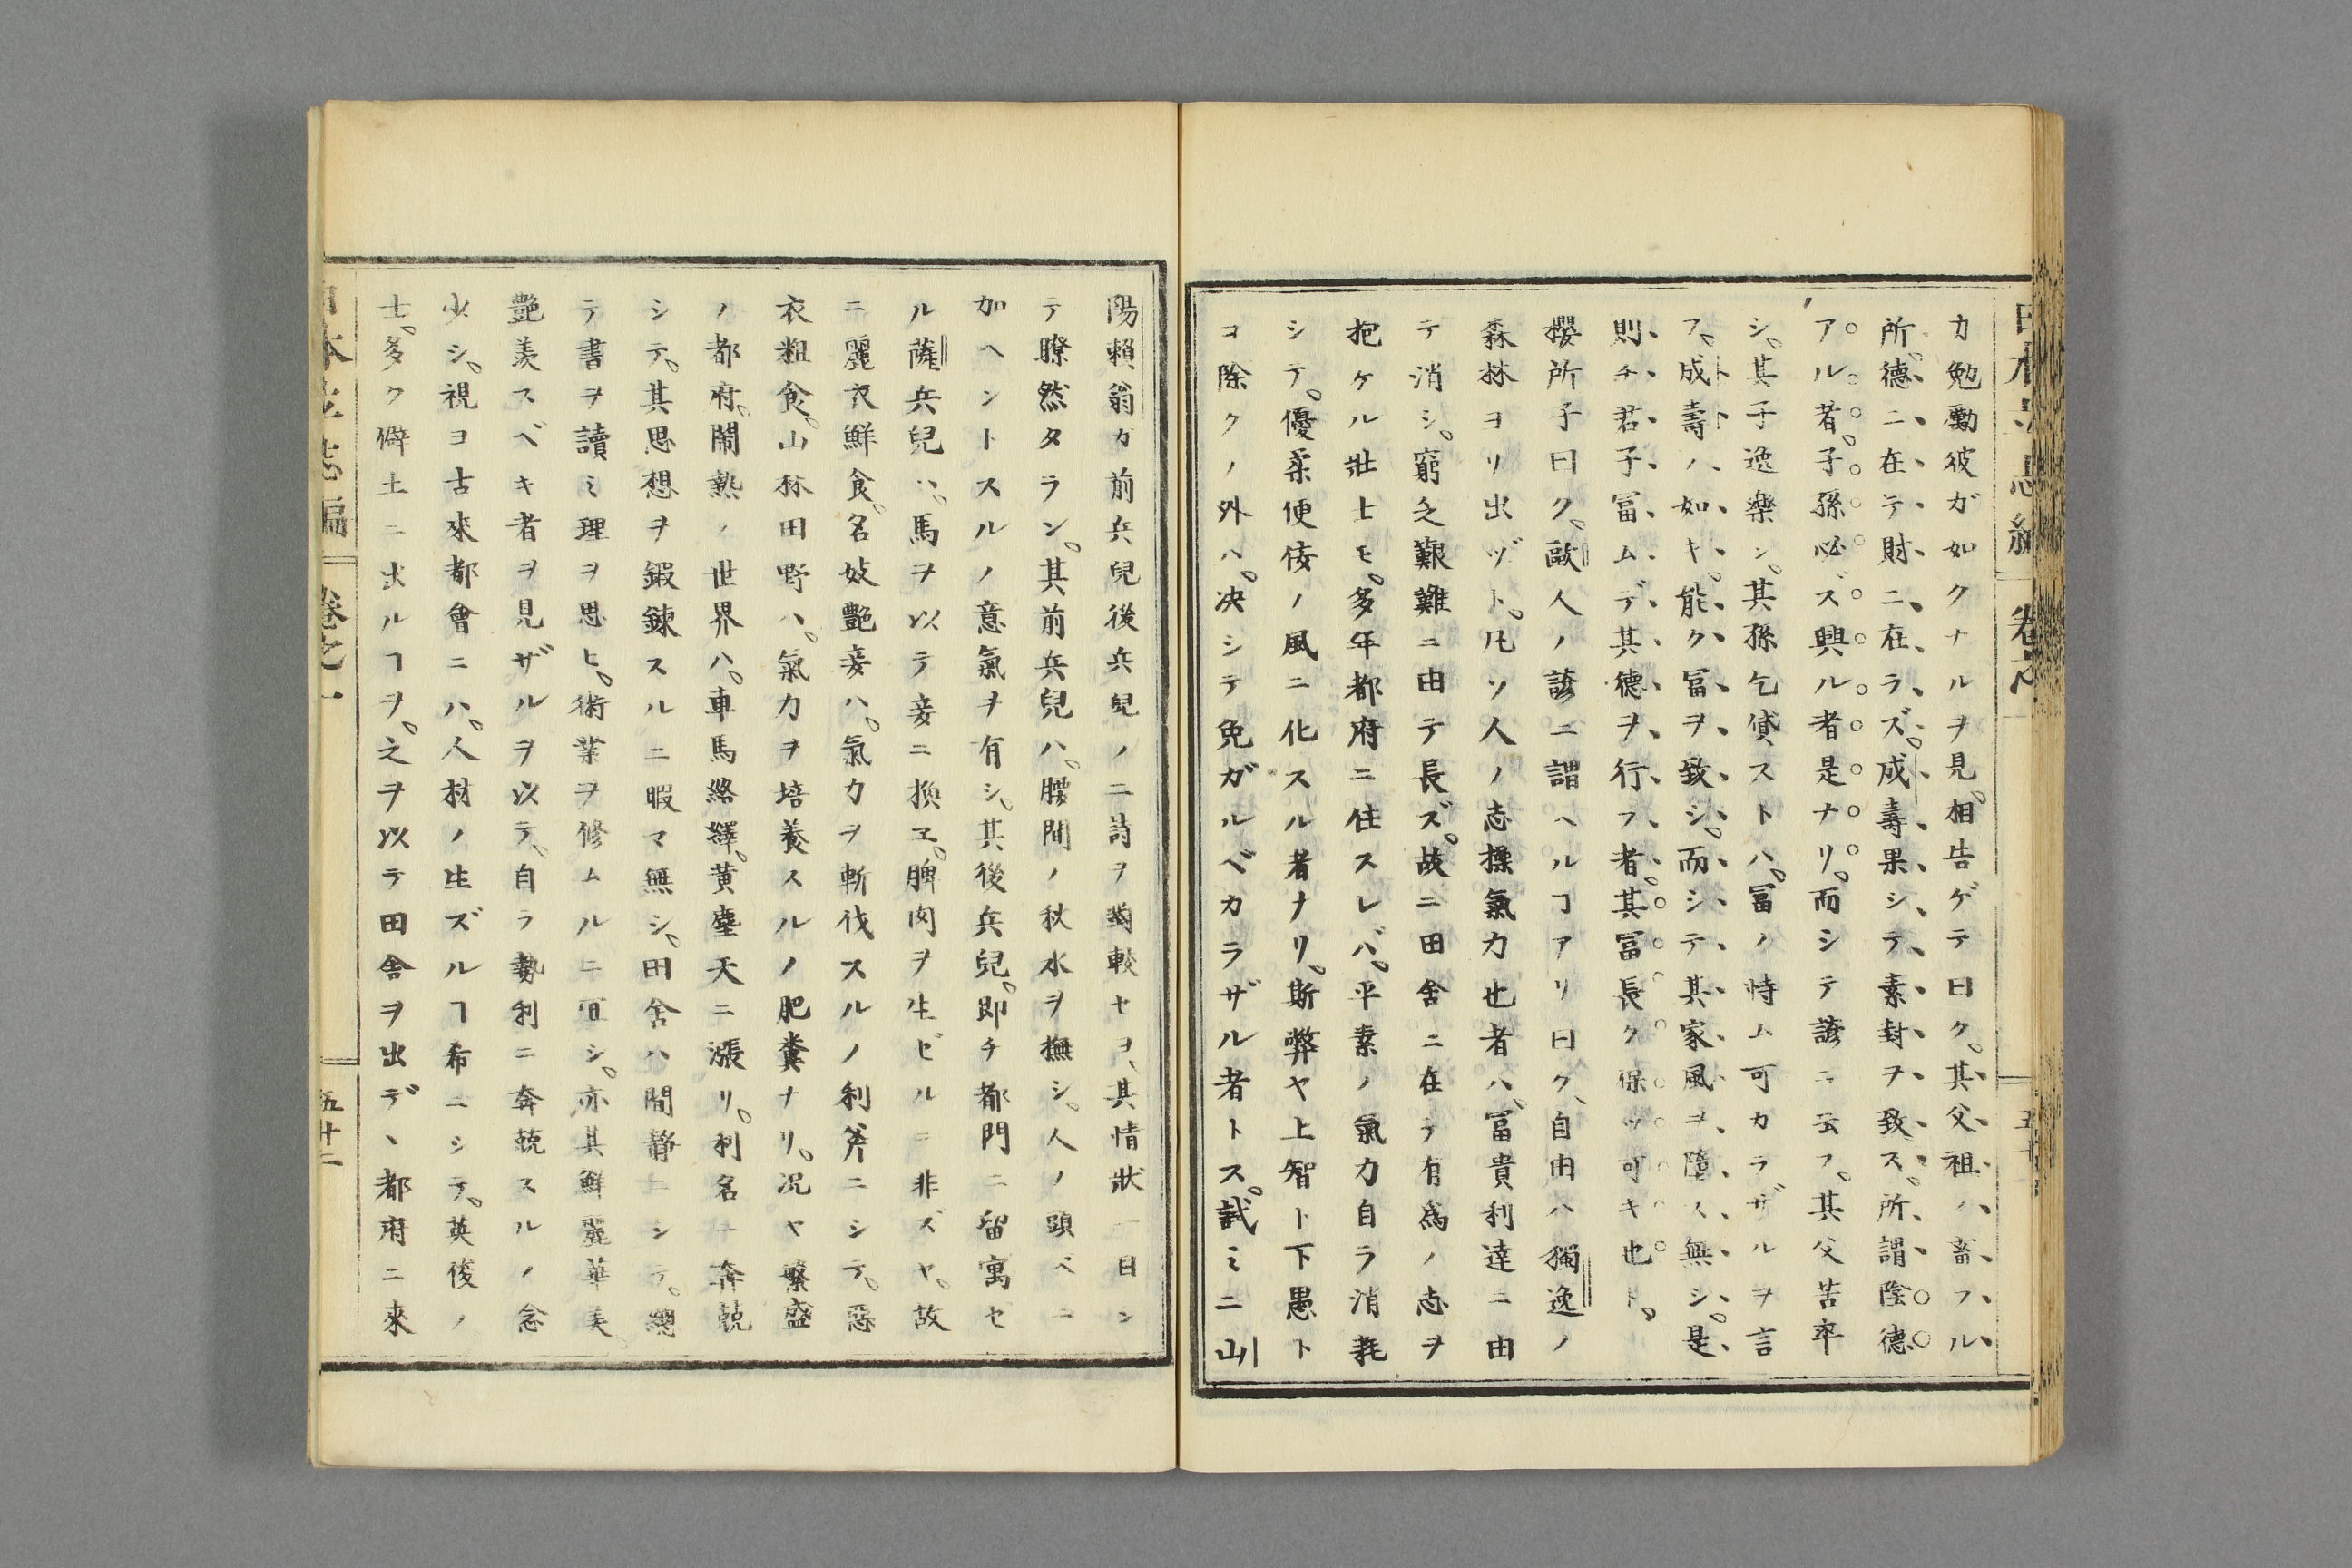 カ勉勵彼ガ如クナルヲ見。相告ゲテ曰ク。其父祖ノ畜フル
所。德ニ在テ財ニ在ラズ。成壽果シテ素封ヲ致ス。所謂陰德
アル者。子孫必ズ興ル者是ナリ。而シテ諺ニ云フ。其父苦率
シ。其子逸樂シ。其孫乞貸ストハ。冨ノ恃ム可カラザルヲ言
フ。成壽ノ如キ。能ク冨ヲ致シ。而シテ其家風ヲ墮ス無シ。是
則チ君子冨ムデ其德ヲ行フ者。其冨長ク保ツ可キ也ト。
櫻所子曰ク。歐人ノ諺ニ謂ヘルヿアリ曰ク、自由ハ獨逸ノ
森林ヨリ出ヅト。凡ソ人ノ志操氣力也者ハ、冨貴利達ニ由
テ消シ。窮乏艱難ニ由テ長ズ。故ニ田舍ニ在テ有爲ノ志ヲ
抱ケル壯士モ。多年都府ニ住スレバ。平素ノ氣力自ラ消耗
シテ。優柔便侫ノ風ニ化スル者ナリ。斯弊ヤ上智ト下愚ト
ヲ除クノ外ハ。决シテ免ガルベカラザル者トス。試ミニ山
陽賴翁ガ前兵兒後兵兒ノ二詩ヲ對較セヨ、其情狀一目シ
テ瞭然タラン。其前兵兒ハ。腰間ノ秋水ヲ撫シ。人ノ頭ベニ
加ヘントスルノ意氣ヲ有シ。其後兵兒。即チ都門ニ留寓セ
ル薩兵兒ハ。馬ヲ以テ妾ニ換エ。髀肉ヲ生ビルニ非ズヤ。故
ニ麗衣鮮食。名妓艶妾ハ。氣力ヲ斬伐スルノ利斧ニシテ。惡
衣粗食。山林田野ハ。氣力ヲ培養スルノ肥糞ナリ。况ヤ繁盛
ノ都府。閙熱ノ世界ハ。車馬絡繹。黄塵天ニ漲リ。利名ニ奔競
シテ。其思想ヲ鍜鍊スルニ暇マ無シ。田舍ハ閒靜ニシテ。總
テ書ヲ讀ミ理ヲ思ヒ。術業ヲ修ムルニ宜シ。亦其鮮麗華美
艶羨スベキ者ヲ見ザルヲ以テ、自ラ勢利ニ奔競スルノ念
少シ。視ヨ古來都會ニハ。人材ノ生ズルヿ希ニシテ。英俊ノ
士。多ク僻土ニ出ルヿヲ。之ヲ以テ田舍ヲ出デ、都府ニ來
卷之一
五十二